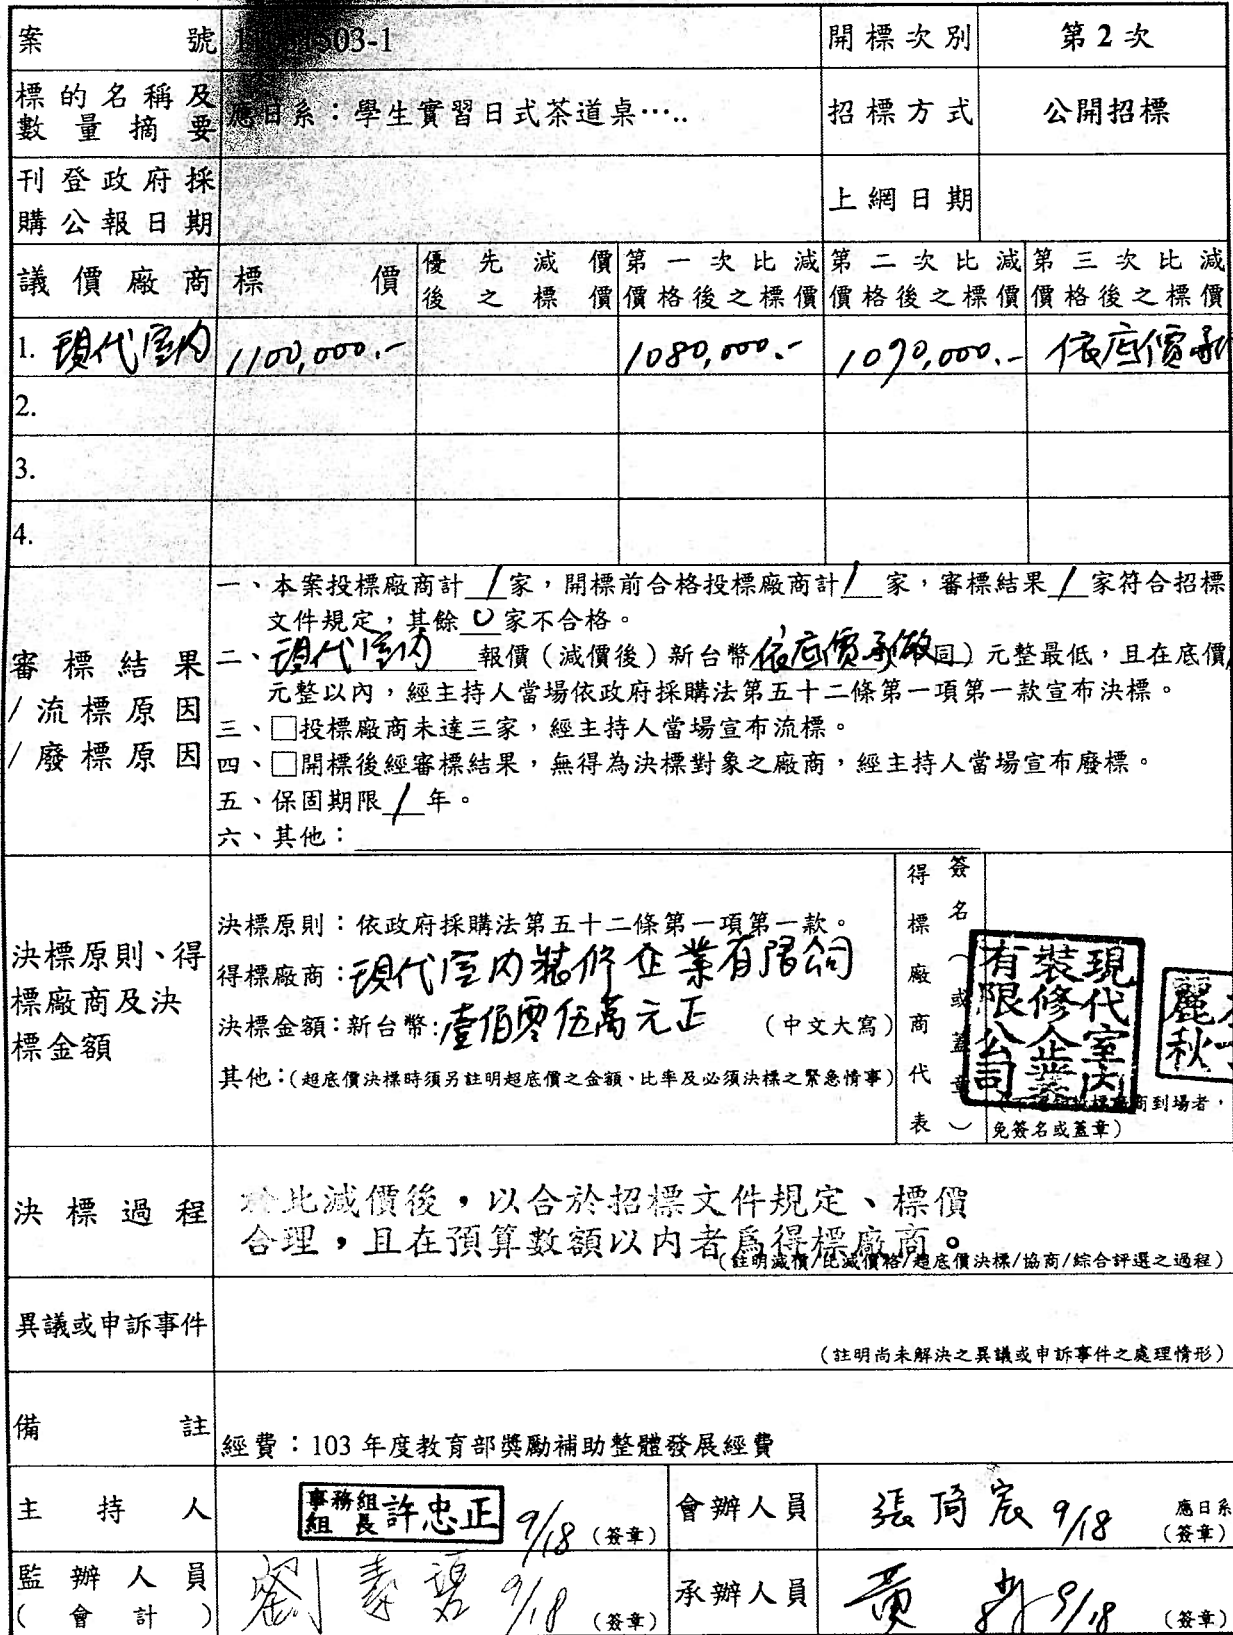 案號 03-1 開標次別 第2次
標的名稱及數量摘要 應日系：學生實習日式茶道桌….. 招標方式 公開招標
刊登政府採購公報日期 上網日期
議價廠商 標價 優先減價後之標價 第一次比減價格後之標價 第二次比減價格後之標價 第三次比減價格後之標價
1. 現代室內 1100,000.- 1080,000.- 1070,000.- 依底價承
2.
3.
4.
審標結果/流標原因/廢標原因
一、本案投標廠商計 1 家，開標前合格投標廠商計 1 家，審標結果 1 家符合招標
文件規定，其餘 0 家不合格。
二、現代室內 報價（減價後）新台幣依底價承做同）元整最低，且在底價
元整以內，經主持人當場依政府採購法第五十二條第一項第一款宣布決標。
三、□投標廠商未達三家，經主持人當場宣布流標。
四、□開標後經審標結果，無得為決標對象之廠商，經主持人當場宣布廢標。
五、保固期限 1 年。
六、其他：
決標原則、得標廠商及決標金額
決標原則：依政府採購法第五十二條第一項第一款。
得標廠商：現代室內裝修企業有限公司
決標金額：新台幣：壹佰零伍萬元正 （中文大寫）
其他：（超底價決標時須另註明超底價之金額、比率及必須決標之緊急情事）
得標廠商代表
簽名（或蓋章）
現代室內裝修企業有限公司
麗秋
商到場者，
免簽名或蓋章）
決標過程
比減價後，以合於招標文件規定、標價
合理，且在預算數額以內者為得標廠商。
（註明減價/比減價格/超底價決標/協商/綜合評選之過程）
異議或申訴事件
（註明尚未解決之異議或申訴事件之處理情形）
備註
經費：103 年度教育部獎勵補助整體發展經費
主持人 事務組組長 許忠正 9/18 （簽章） 會辦人員 張倚宸 9/18 應日系（簽章）
監辦人員（會計） 劉素碧 9/18 （簽章） 承辦人員 黃 9/18 （簽章）